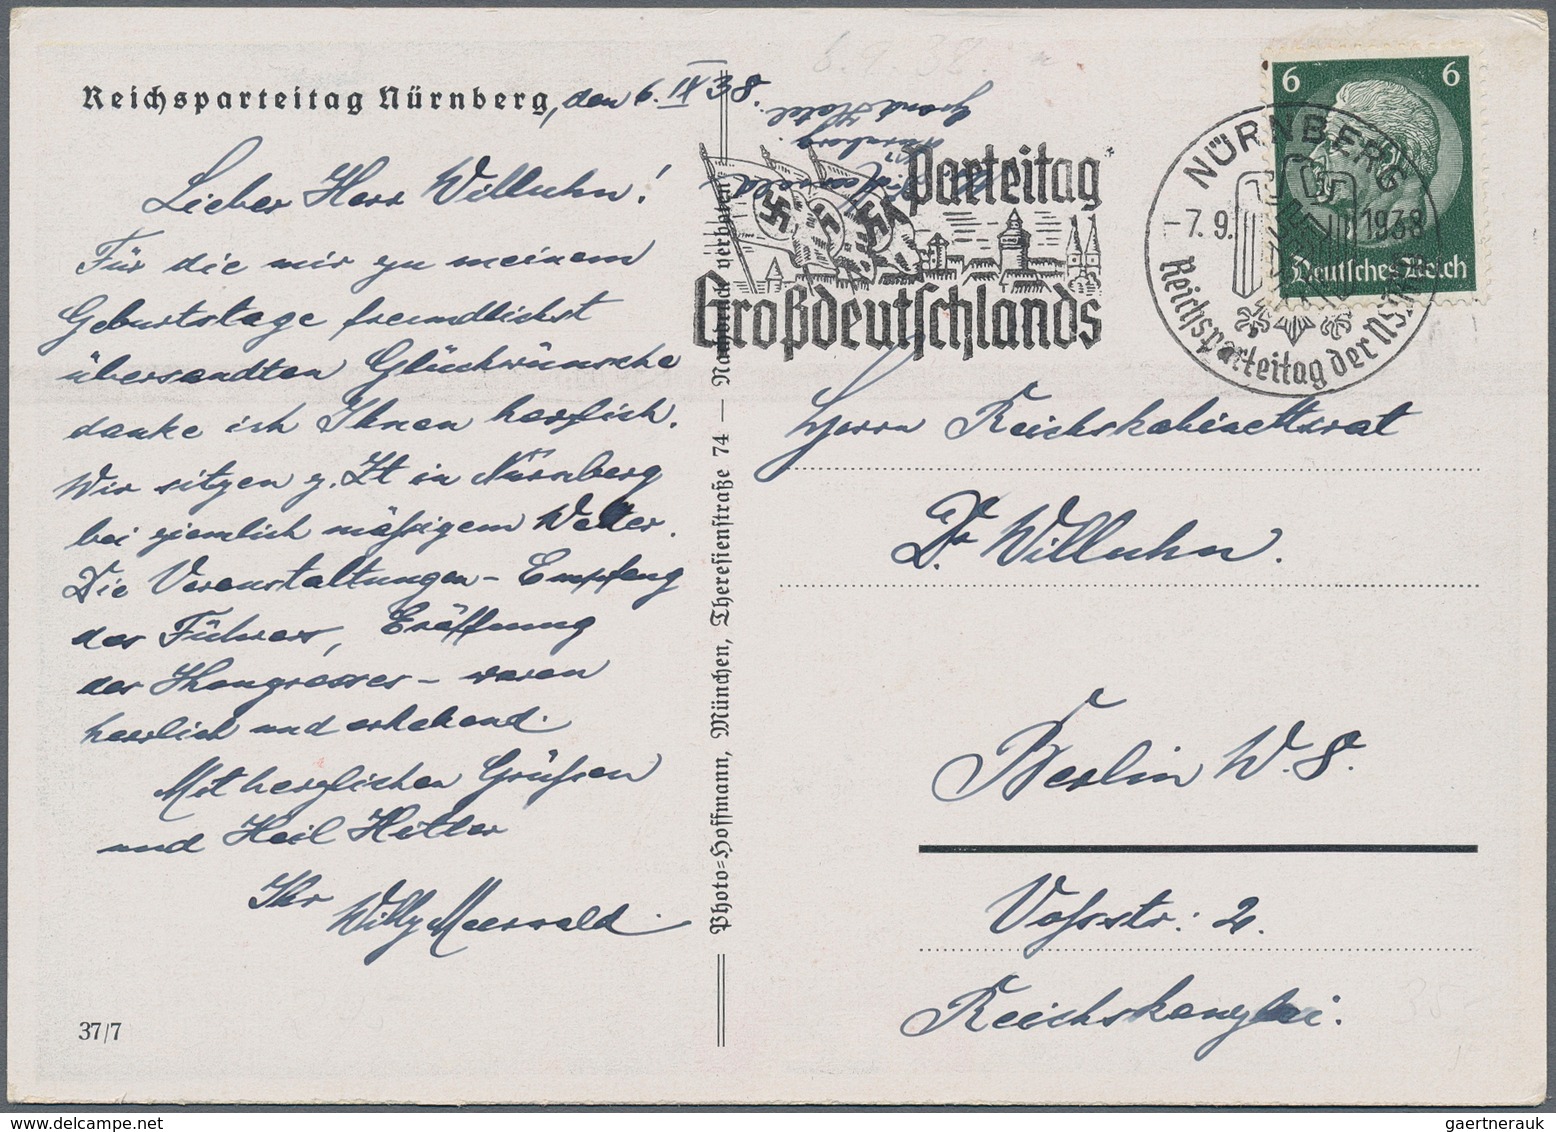 Reichsparteitag Nürnberg, den 6. IX 38.
Lieber Herr Willuhn!
Für die mir zu meinem
Geburtstage freundlichst
übersandten Glückwünsche
danke ich Ihnen herzlich.
Wir sitzen z. Zt in Nürnberg
bei ziemlich mäßigem Wetter.
Die Veranstaltungen – Empfang
des Führers, Eröffnung
des Kongresses – waren
herrlich und erhebend.
Mit herzlichen Grüßen
und Heil Hitler
Ihr
Willy Meerwald.
37/7
Photo-Hoffmann, München, Theresienstraße 74 — Nachdruck verboten
6.9.38
Meerwald
Nürnberg
Grand Hotel
Parteitag
Großdeutschlands
NÜRNBERG
-7. 9. 1938
Reichsparteitag der NSDAP
6 6
Deutsches Reich
Herrn Reichskabinettsrat
Dr Willuhn.
Berlin W. 8.
Vossstr: 2.
Reichskanzlei.
gaertnerauk@delcampe.net